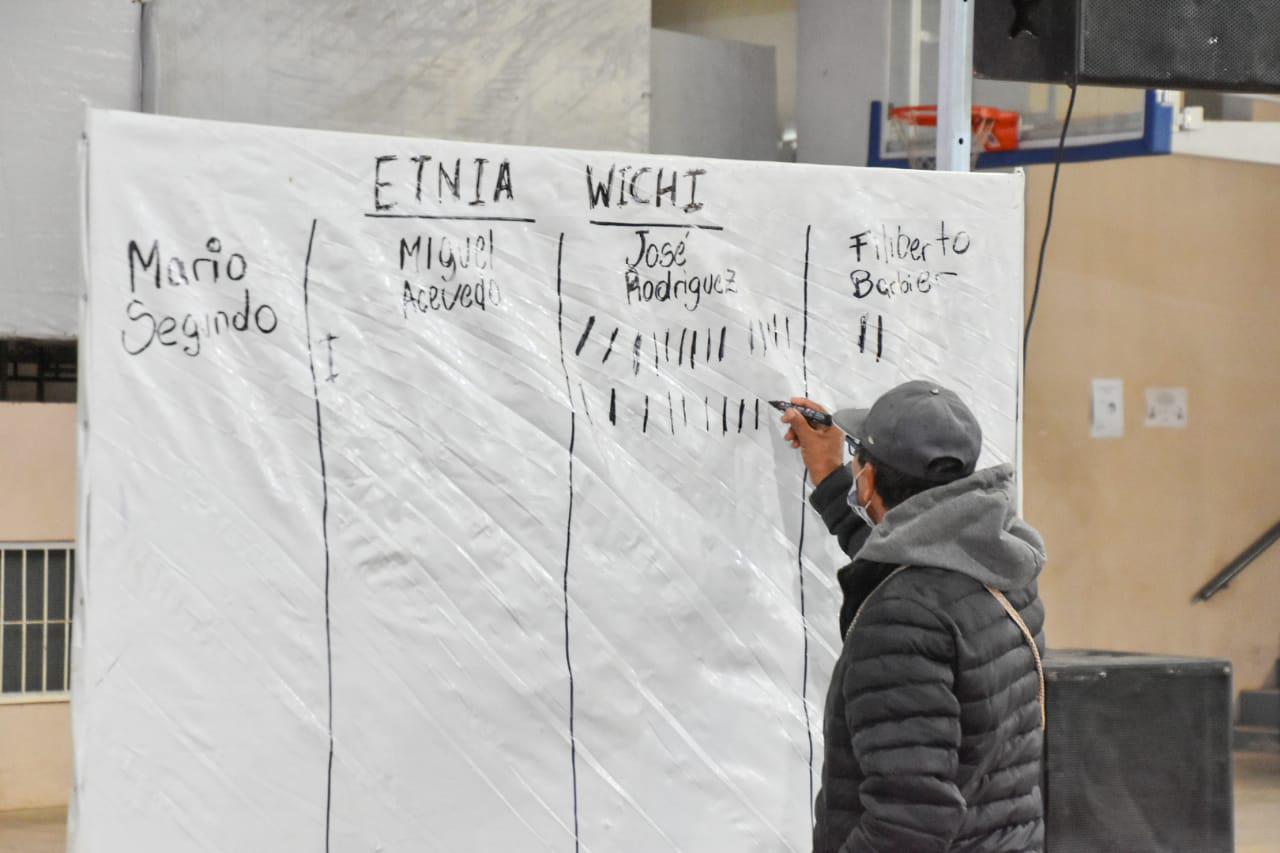 ETNIA WICHI
Mario
Segundo
Miguel
Acevedo
José
Rodriguez
Filiberto
Barbier